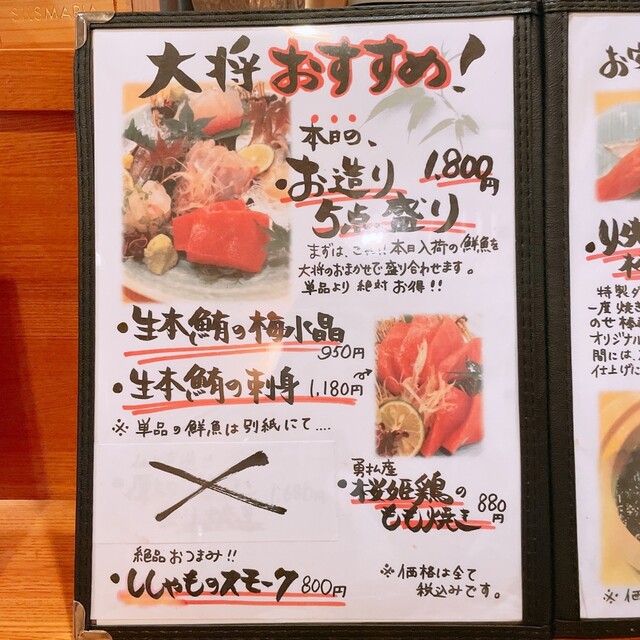 大将 おすすめ!
本日の、
・お造り
5点盛り
1,800円
まずは、これ!!本日入荷の鮮魚を
大将のおまかせで盛り合わせます。
単品より 絶対 お得!!
・生本鮪の梅水晶
950円
・生本鮪の刺身 1,180円
※ 単品の鮮魚は別紙にて....
勇払産
・桜姫鶏の
もも焼き
880円
絶品おつまみ!!
・ししゃものスモーク 800円
※ 価格は全て
税込みです。
特製ダ
一度焼き
のせ棒
オリジナル
間には、
仕上げに